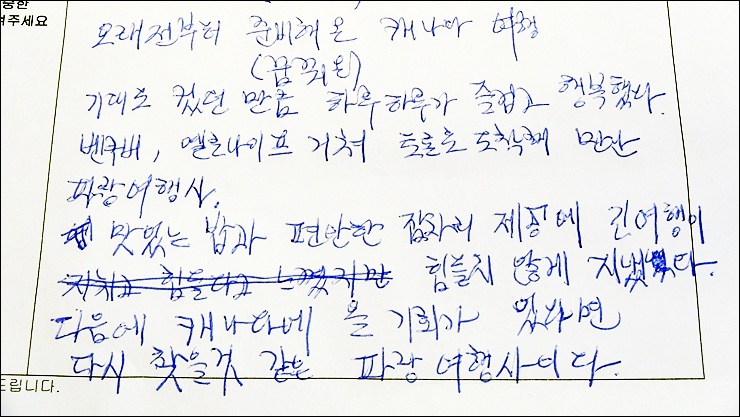 중한
겨주세요
오래전부터 준비해 온 캐나다 여행
(꿈꿔온)
기대도 컸던 만큼 하루하루가 즐겁고 행복했다.
벤쿠버, 옐로나이프 거쳐 토론토 도착해 만난
파랑여행사.
맛있는 밥과 편안한 잠자리 제공에 긴여행이
지치고 힘들다고 느꼈지만 힘들지 않게 지냈다.
다음에 캐나다에 올 기회가 있다면
다시 찾을것 같은 파랑여행사이다.
드립니다.